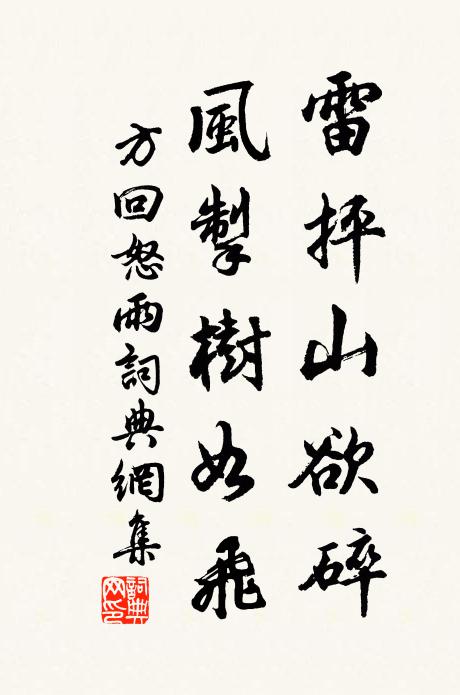 雷抨山欲碎
風掣樹如飛
方回怒雨詞典網集
詞典網印